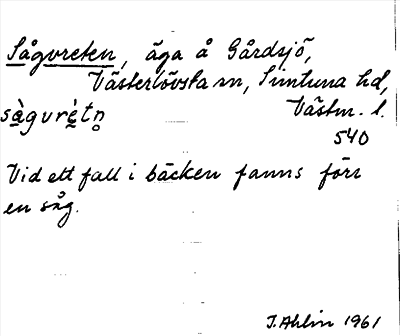 Sågvreten, äga å Gårdsjö,
Västerlövsta sn, Simtuna hd,
sàgvrètn̥ Västm. l.
540
Vid ett fall i bäcken fanns förr
en såg.
J. Ahlin 1961